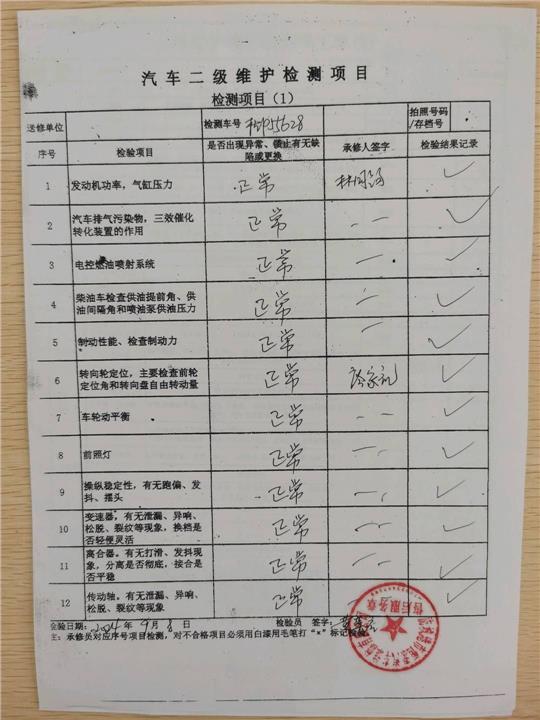 汽车二级维护检测项目
检测项目（1）
送修单位 检测车号 拍照号码/存档号
序号 检验项目 是否出现异常、锁止有无缺陷或更换 承修人签字 检验结果记录
1 发动机功率，气缸压力 正常 ✓
2 汽车排气污染物，三效催化转化装置的作用 正常 ✓
3 电控燃油喷射系统 正常 ✓
4 柴油车检查供油提前角、供油间隔角和喷油泵供油压力 正常 ✓
5 制动性能、检查制动力 正常 ✓
6 转向轮定位，主要检查前轮定位角和转向盘自由转动量 正常 ✓
7 车轮动平衡 正常 ✓
8 前照灯 正常 ✓
9 操纵稳定性，有无跑偏、发抖、摆头 正常 ✓
10 变速器，有无泄漏、异响、松脱、裂纹等现象，换档是否轻便灵活 正常 ✓
11 离合器，有无打滑、发抖现象，分离是否彻底，接合是否平稳 正常 ✓
12 传动轴，有无泄漏、异响、松脱、裂纹等现象 正常 ✓
检验日期：2024 年 9 月 8 日 检验员 签字：
注：承修员对应序号项目检测，对不合格项目必须用白漆用毛笔打“×”标记检验
售后服务章